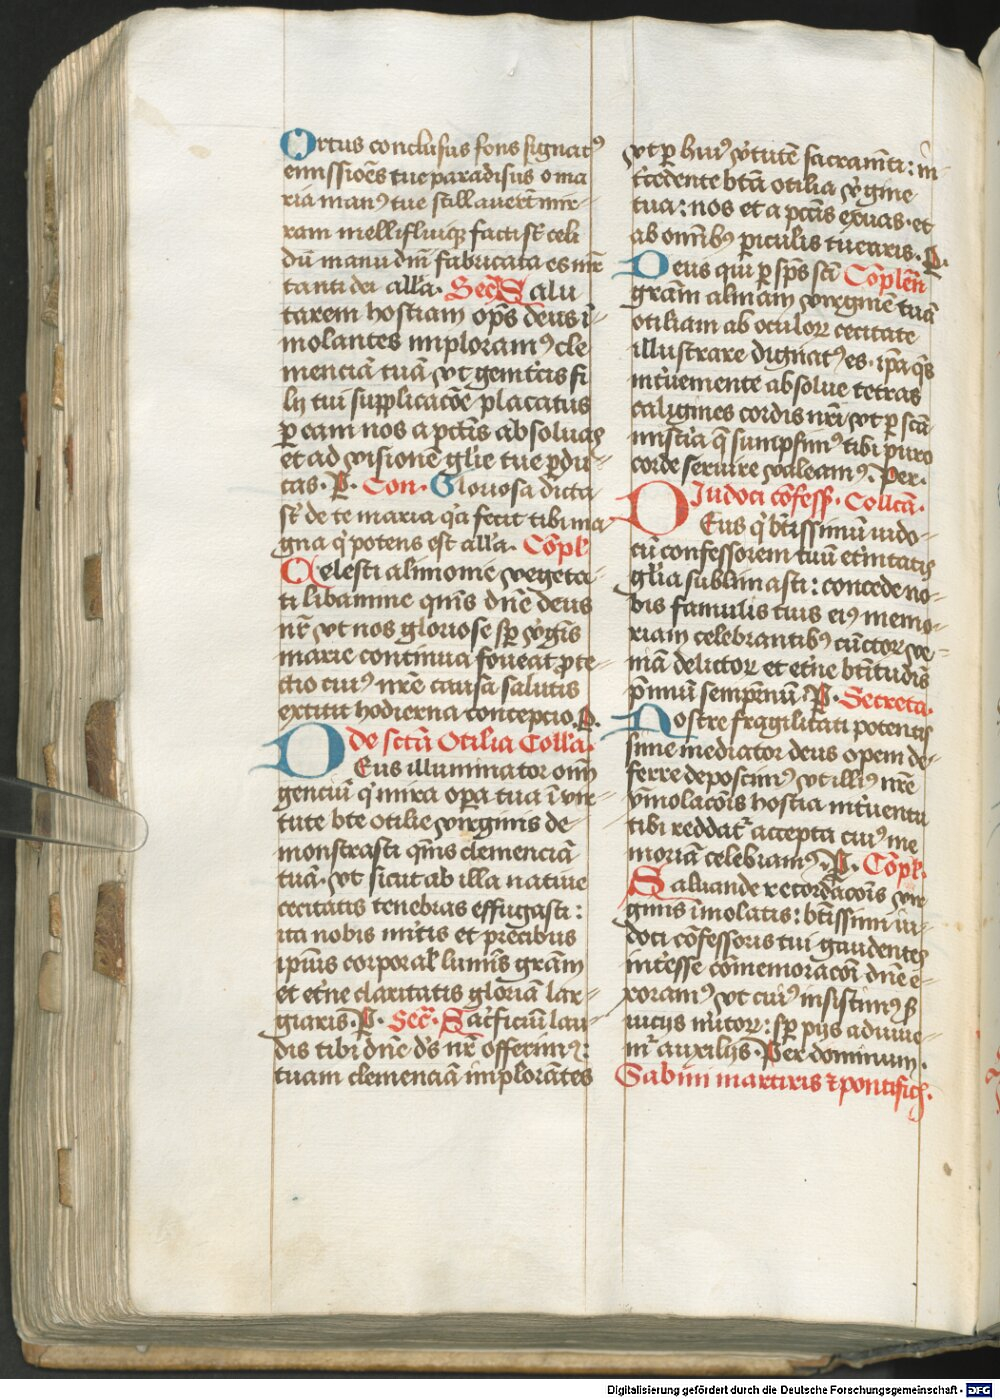 Ortus conclusus fons signatꝰ
emissiōes tue paradisus o ma
ria manꝰ tue stillauerūt mir-
ram mellifluiqꝫ facti sūt celi
dū manu dnī fabricata es mr̄
tanti dei all'a. Secr̄ Salu
tarem hostiam op̄s deus i-
molantes imploramꝰ cle
menciā tuā vt gemtrcis fi
lij tui supplicacōe placatus
ꝑ eam nos a pctīs absoluas
et ad visionē gl'ie tue ꝑdu-
cas. P. Con. Gloriosa dicta
sūt de te maria q'a fecit tibi ma
gna q' potens est all'a. Cōpl'
Celesti alimonie vegeta-
ti libamine q̄mˢ dn̄e deus
nr̄ vt nos gloriose sꝑ v'gīs
marie continua foueat ꝓte-
ctio cuiꝰ nr̄e causā salutis
extitit hodierna concepcio. P.
de sctā Otilia Coll'a.
DEus illuminator om̄
genciū q' mira oꝑa tua ī vir-
tute bte otilie virginis de-
monstrasti q̄mˢ clemenciā
tuā. vt sicut ab illa natiue
cecitatis tenebras effugasti:
ita nobis mitis et precibus
ipīus corporal' lumīs grām
et et'ne claritatis gloriā lar-
giaris. P. Secr̄. Sac'ficiū lau-
dis tibi dn̄e d's nr̄ offerimꝰ:
tuam clemenciā implorātes
vt ꝑ huiꝰ v'tutē sacramt̄i: in
t'cedente btā otilia v'gine
tua: nos et a pctīs exuas. et
ab omībꝰ piculis tuearis. P.
Deus qui ꝑ sp̄s sctī Cōplen̄
grām almam virginē tuā
otiliam ab oculoꝝ cecitate
illustrare dignatꝰ es. ip̄a q̄s
int'uemente absolue tetras
caligines cordis nr̄i vt ꝑ sctā
mist'ia q̄ sumpsimꝰ tibi puro
corde seruire valeamꝰ. Per.
Iudoci cōfess'. Collctā.
DEus q' bt̄issimū iudo-
cū confessorem tuū et'nitatis
gl'ia sublimasti: concede no-
bis famulis tuis eiꝰ memo-
riam celebrantibꝰ cūctoꝝ ve-
niā delictoꝝ et et'ne bt̄itudīs
p̄miū sempit'nū. P. Secreta.
Nostre fragilitati potentis
sime mediator deus opem de-
ferre deposcimꝰ vt illiꝰ nr̄e
ymolacōis hostia int'uentu
tibi reddatᷣ accepta cuiꝰ me
moriā celebramꝰ. P. Cōpl'.
Saluande recordacōis vir
ginis īmolatis: bt̄issimi iu-
doci cōfessoris tui gaudentes
int'esse cōmemoracōi dn̄e e-
xoramꝰ vt cuiꝰ insistimꝰ s'
uicijs nitoꝝ: sꝑ pijs adiuue-
mᷣ auxilijs. Per dominum.
Sabini martiris et pontificis.
Digitalisierung gefördert durch die Deutsche Forschungsgemeinschaft - DFG